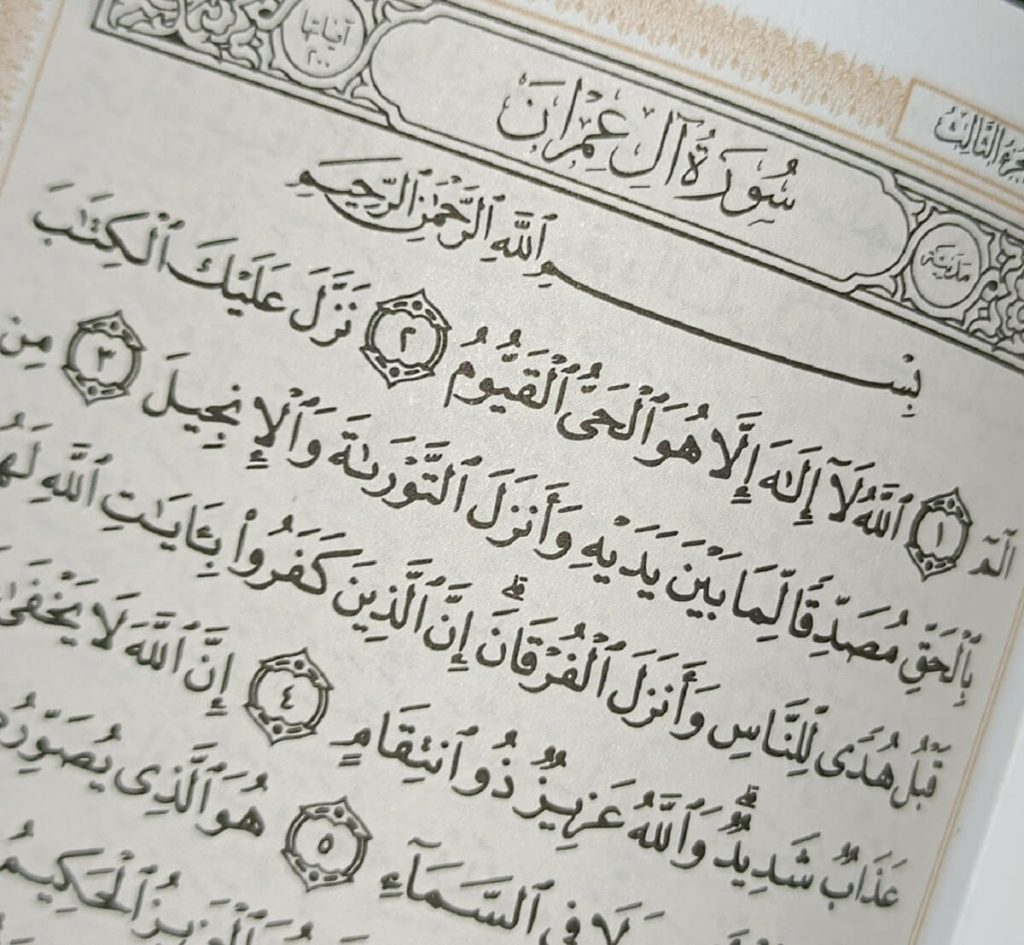 الجزء الثالث
آياتها ٢٠٠
سُورَةُ آلِ عِمْرَانَ
مدنية
بِسْمِ ٱللَّهِ ٱلرَّحْمَٰنِ ٱلرَّحِيمِ
الٓمٓ ١ ٱللَّهُ لَآ إِلَٰهَ إِلَّا هُوَ ٱلْحَىُّ ٱلْقَيُّومُ ٢ نَزَّلَ عَلَيْكَ ٱلْكِتَٰبَ
بِٱلْحَقِّ مُصَدِّقًا لِّمَا بَيْنَ يَدَيْهِ وَأَنزَلَ ٱلتَّوْرَىٰةَ وَٱلْإِنجِيلَ ٣ مِن
قَبْلُ هُدًى لِّلنَّاسِ وَأَنزَلَ ٱلْفُرْقَانَ ۗ إِنَّ ٱلَّذِينَ كَفَرُوا۟ بِـَٔايَٰتِ ٱللَّهِ لَهُ
عَذَابٌ شَدِيدٌ ۗ وَٱللَّهُ عَزِيزٌ ذُو ٱنتِقَامٍ ٤ إِنَّ ٱللَّهَ لَا يَخْفَىٰ
لَا فِى ٱلسَّمَآءِ ٥ هُوَ ٱلَّذِى يُصَوِّرُ
ٱلْعَزِيزُ ٱلْحَكِيمُ